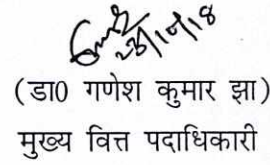 23/10/18
(डा0 गणेश कुमार झा)
मुख्य वित्त पदाधिकारी